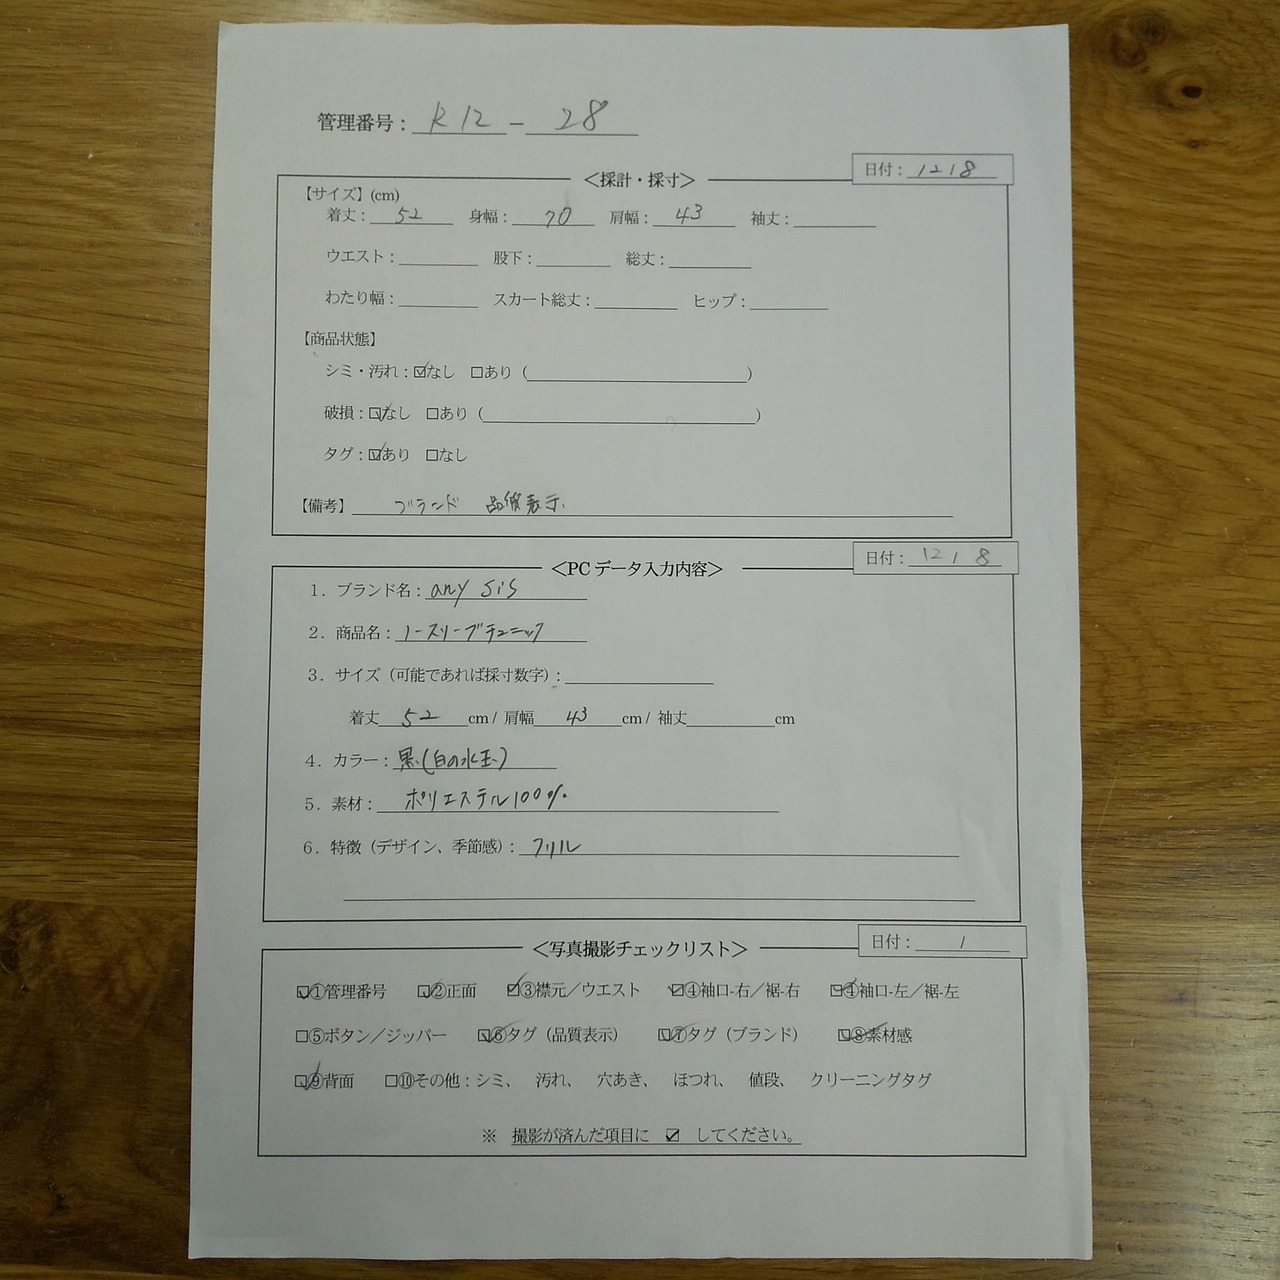 管理番号：R12－28
日付：1218
＜採計・採寸＞
【サイズ】(cm)
着丈：52 身幅：70 肩幅：43 袖丈：
ウエスト： 股下： 総丈：
わたり幅： スカート総丈： ヒップ：
【商品状態】
シミ・汚れ：☑なし □あり（ ）
破損：☑なし □あり（ ）
タグ：☑あり □なし
【備考】 ブランド 品質表示
日付：1218
＜PCデータ入力内容＞
１．ブランド名：any sis
２．商品名：ノースリーブチュニック
３．サイズ（可能であれば採寸数字）：
着丈 52 cm / 肩幅 43 cm / 袖丈 cm
４．カラー：黒(白の水玉)
５．素材：ポリエステル100%
６．特徴（デザイン、季節感）：フリル
日付： /
＜写真撮影チェックリスト＞
☑①管理番号 ☑②正面 ☑③襟元／ウエスト ☑④袖口-右／裾-右 ☑④袖口-左／裾-左
□⑤ボタン／ジッパー ☑⑥タグ（品質表示） ☑⑦タグ（ブランド） ☑⑧素材感
☑⑨背面 □⑩その他：シミ、 汚れ、 穴あき、 ほつれ、 値段、 クリーニングタグ
※ 撮影が済んだ項目に ☑ してください。